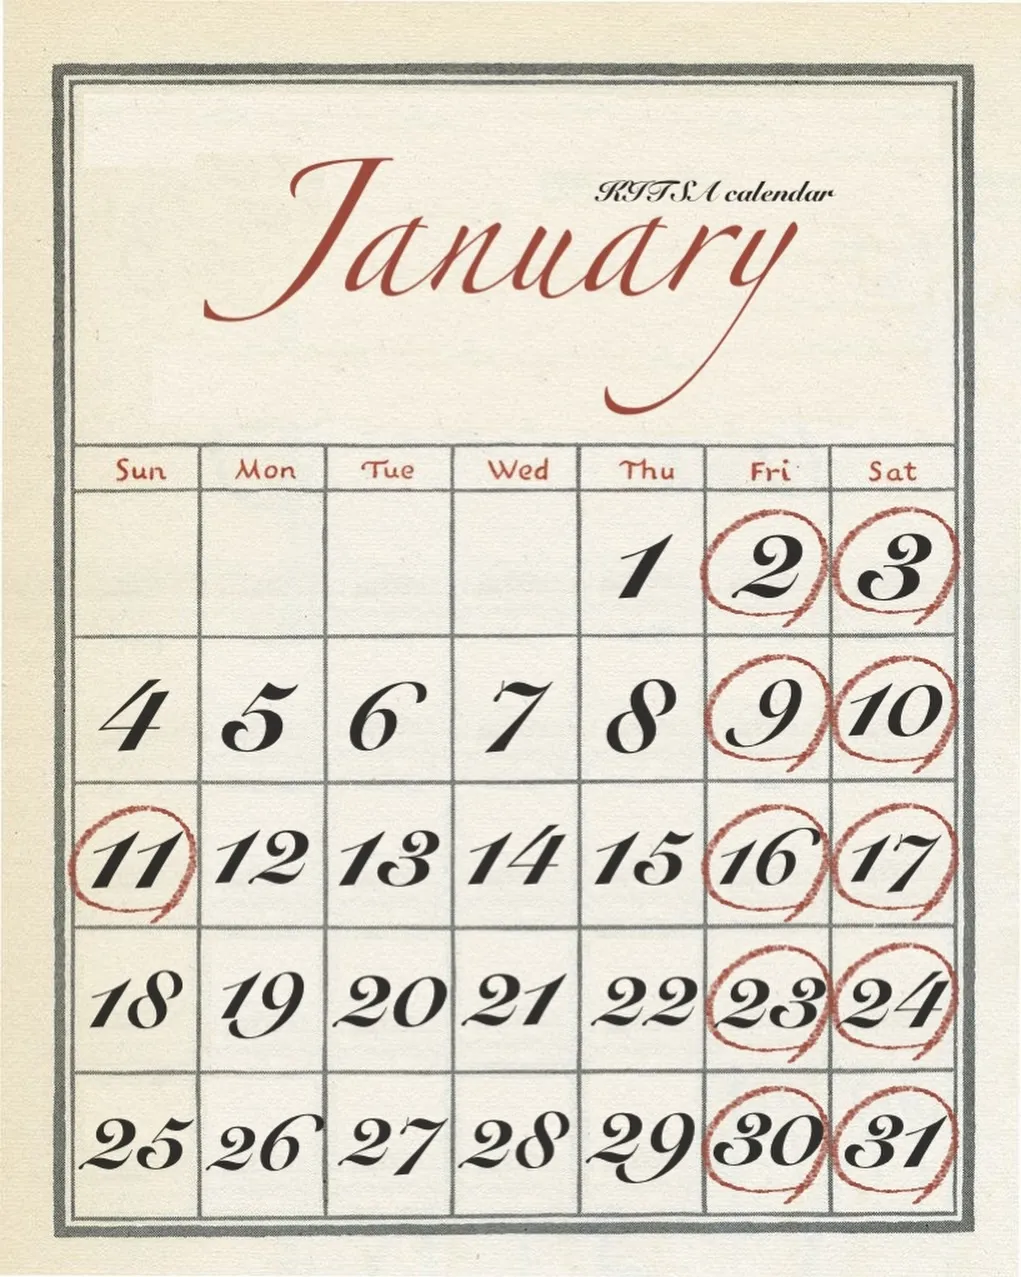 KITSA calendar
January
Sun Mon Tue Wed Thu Fri Sat
1 2 3
4 5 6 7 8 9 10
11 12 13 14 15 16 17
18 19 20 21 22 23 24
25 26 27 28 29 30 31